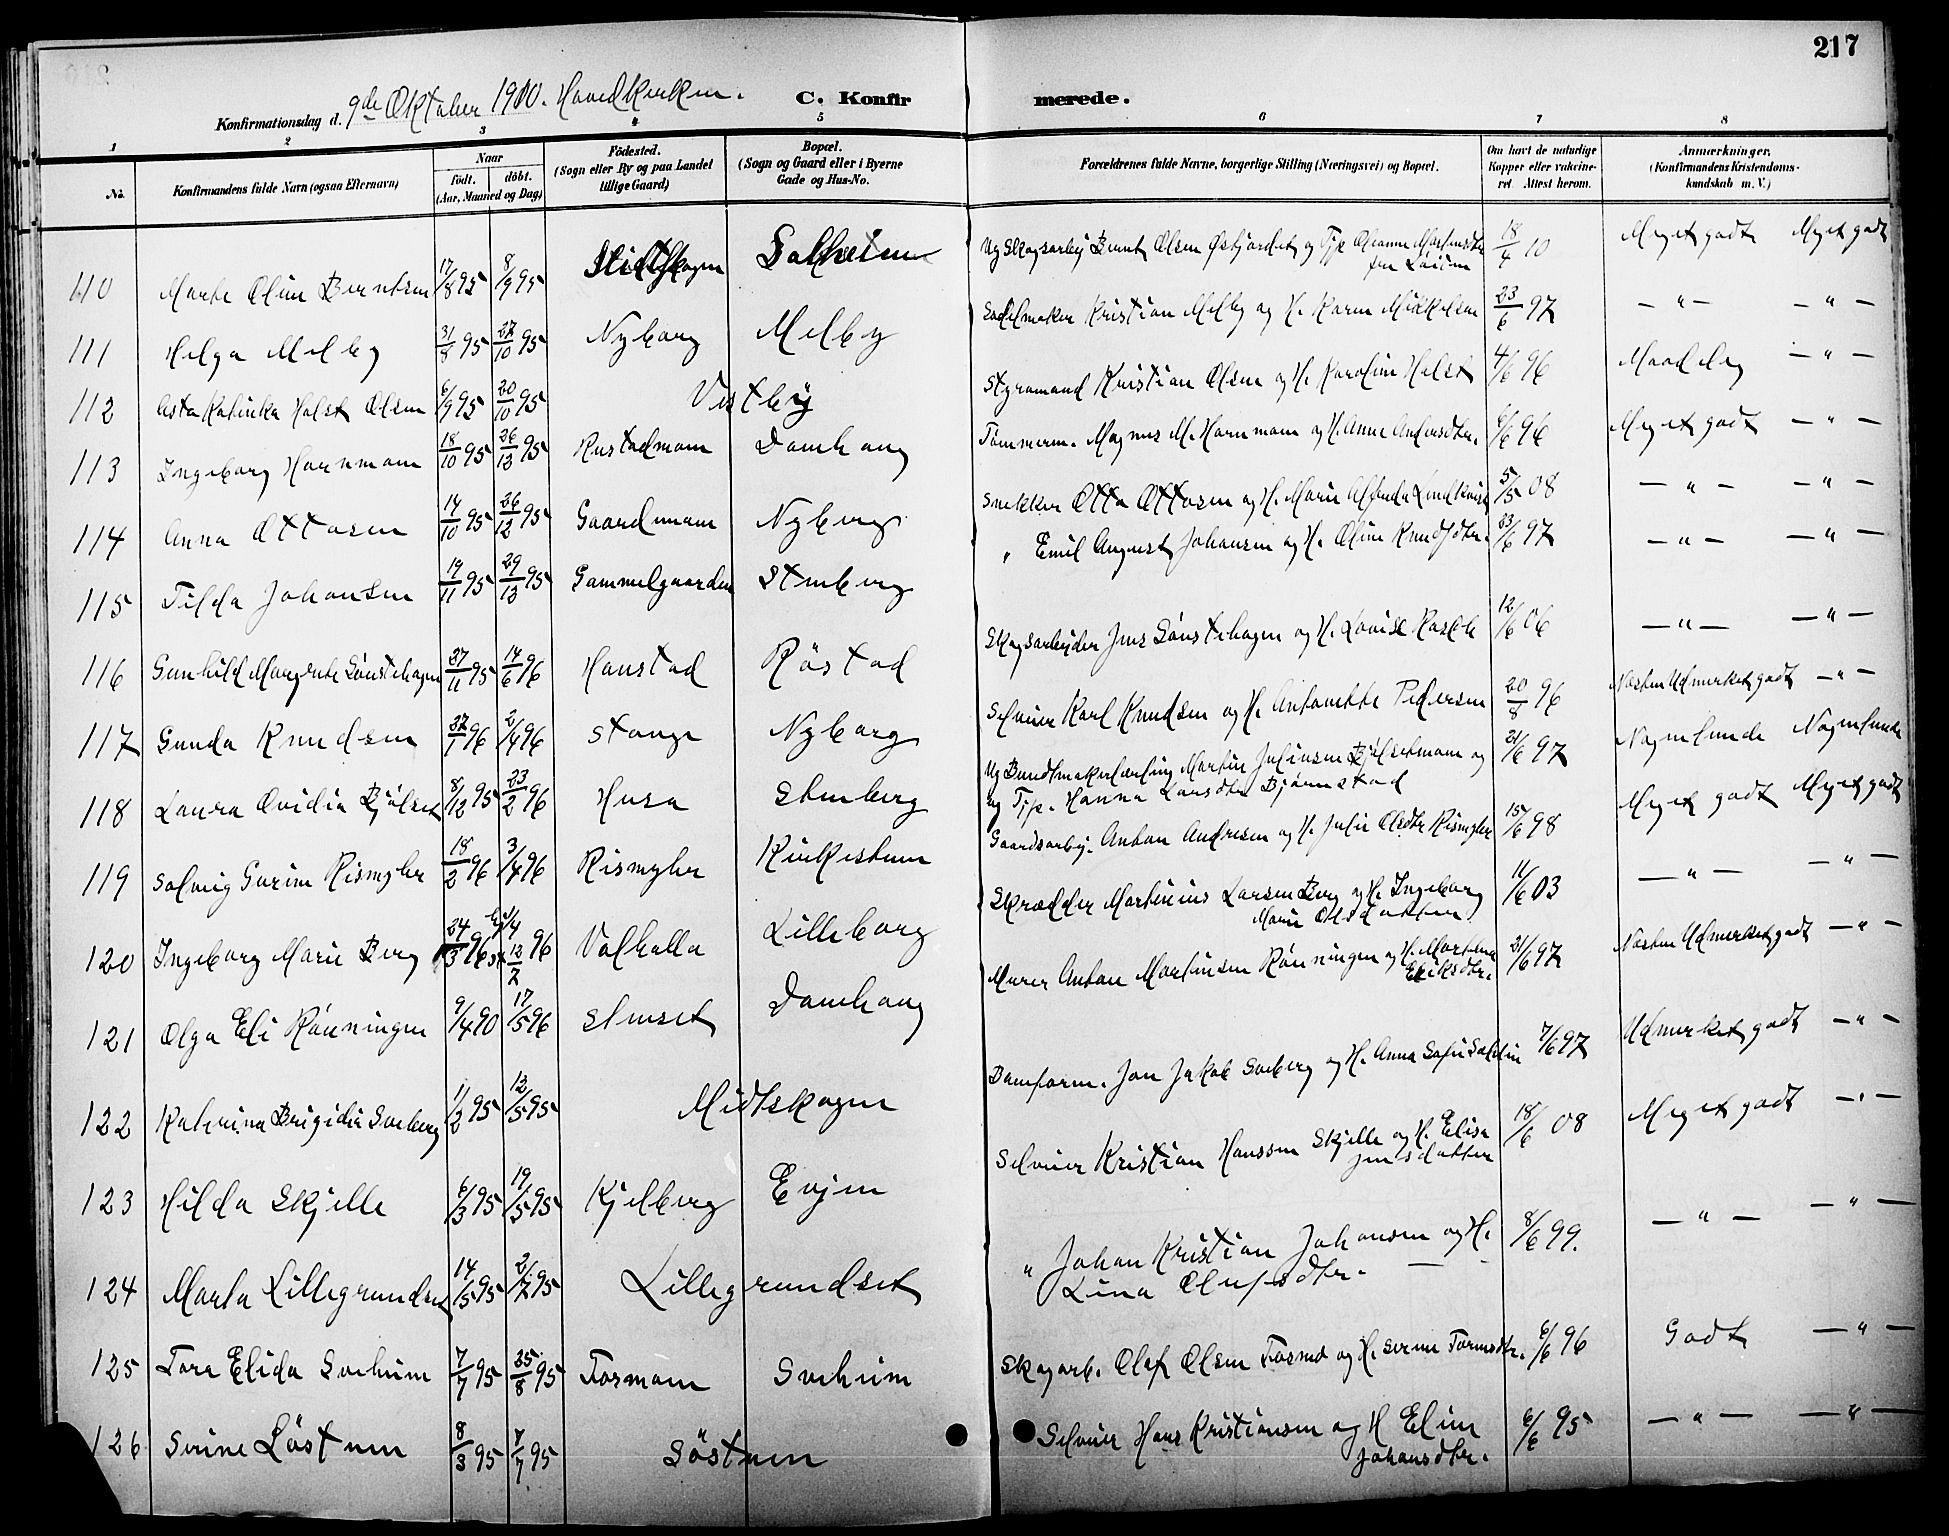 217
Konfirmationsdag d. 9de Oktober 1910. Hovedkirken. C. Konfirmerede.
1 2 3 4 5 6 7 8
No. Konfirmandens fulde Navn (ogsaa Efternavn) Naar født. døbt. (Aar, Maaned og Dag) Födested. (Sogn eller By og paa Landet tillige Gaard) Bopæl. (Sogn og Gaard eller i Byerne Gade og Hus-No. Forældrenes fulde Navne, borgerlige Stilling (Næringsvei) og Bopæl. Om havt de naturlige Kopper eller vakcineret. Attest herom. Anmærkninger. (Konfirmandens Kristendomskundskab m. V.)
110 Marte Oline Berntsen 17/8 95 8/9 95 Midtskogen Solheim Ug Skogsarbej Bernt Olsen Østjordet og Pige Oleanne Martinsdtr fra Løiten 18/4 10 Meget godt Meget godt
111 Helga Melby 31/8 95 27/10 95 Nyborg Melby Sadelmaker Kristian Melby og H. Karen Mikkelsen 23/6 97 — " — — " —
112 Asta Katinka Holst Olsen 6/9 95 20/10 95 Vestby Styrmand Kristian Olsen og H. Karoline Holst 4/6 96 Maadelig — " —
113 Ingeborg Hornmoen 18/10 95 26/12 95 Rustadmoen Damhaug Tømmerm. Magnus M. Hornmoen og H. Anne Andersdtr. 6/6 96 Meget godt — " —
114 Anna Ottosen 14/10 95 26/12 95 Gaardmoen Nyberg Snekker Otto Ottosen og H. Marie Alfrida Lindkvist 5/5 08 — " — — " —
115 Tilda Johansen 19/11 95 29/12 95 Gammelgaarden Stenberg " Emil August Johansen og H. Oline Knudsdtr. 23/6 97 — " — — " —
116 Gunhild Margrete Sønstehagen 27/11 95 14/6 96 Hanstad Røstad Skogsarbeider Jens Sønstehagen og H. Lovise 12/6 06 — " — — " —
117 Gunda Knudsen 27/1 96 2/4 96 Stange Nyborg Selveier Karl Knudsen og H. Antonette Pedersen 20/8 96 Næsten Udmerket godt — " —
118 Laura Ovidia Bjølset 8/12 95 23/2 96 Husa Stenberg Ug Bundtmakerlærling Martin Juliusen og
og Pige. Hanna Larsdtr Bjørnstad 21/6 97 Nogenlunde Nogenlunde
119 Solveig Gurine Rismyhr 18/2 96 3/4 96 Rismyhr Kirkestuen Gaardsarbej. Anton Andresen og H. Julie Olsdtr Rismyhr 15/6 98 Meget godt Meget godt
120 Ingeborg Marie Berg 24/3 96 12/7 96 Valhalla Lilleborg Skrædder Martinius Larsen Berg og H. Ingeborg
Marie Olsdatter 11/6 03 — " — — " —
121 Olga Eli Rønningen 9/4 90 17/5 96 Stenset Damhaug Murer Anton Martinsen Rønningen og H. Martene
Eriksdtr. 21/6 97 Næsten Udmerket godt — " —
122 Katrina Brigidie Soeberg 1/2 95 12/5 95 Midtskogen Damform. Jon Jakob Soeberg og H. Anna Sofie 7/6 97 Udmerket godt — " —
123 Hilda Skjelle 6/3 95 19/5 95 Kjelberg Evjen Selveier Kristian Hanssen Skjelle og H. Elise
Jensdatter 18/6 08 Meget godt — " —
124 Marta Lillegrundset 14/5 95 2/7 95 Lillegrundset " Johan Kristian Johansen og H.
Lina Olufsdtr. — 8/6 99. — " — — " —
125 Tora Elida Soeheim 7/7 95 25/8 95 Tormoen Soeheim Skogarb. Olaf Olsen og H. 6/6 96 Godt — " —
126 Serine Løstuen 8/3 95 7/7 95 Søstuen Selveier Hans Kristiansen og H Eline
Johansdtr. 6/6 95 — " — — " —